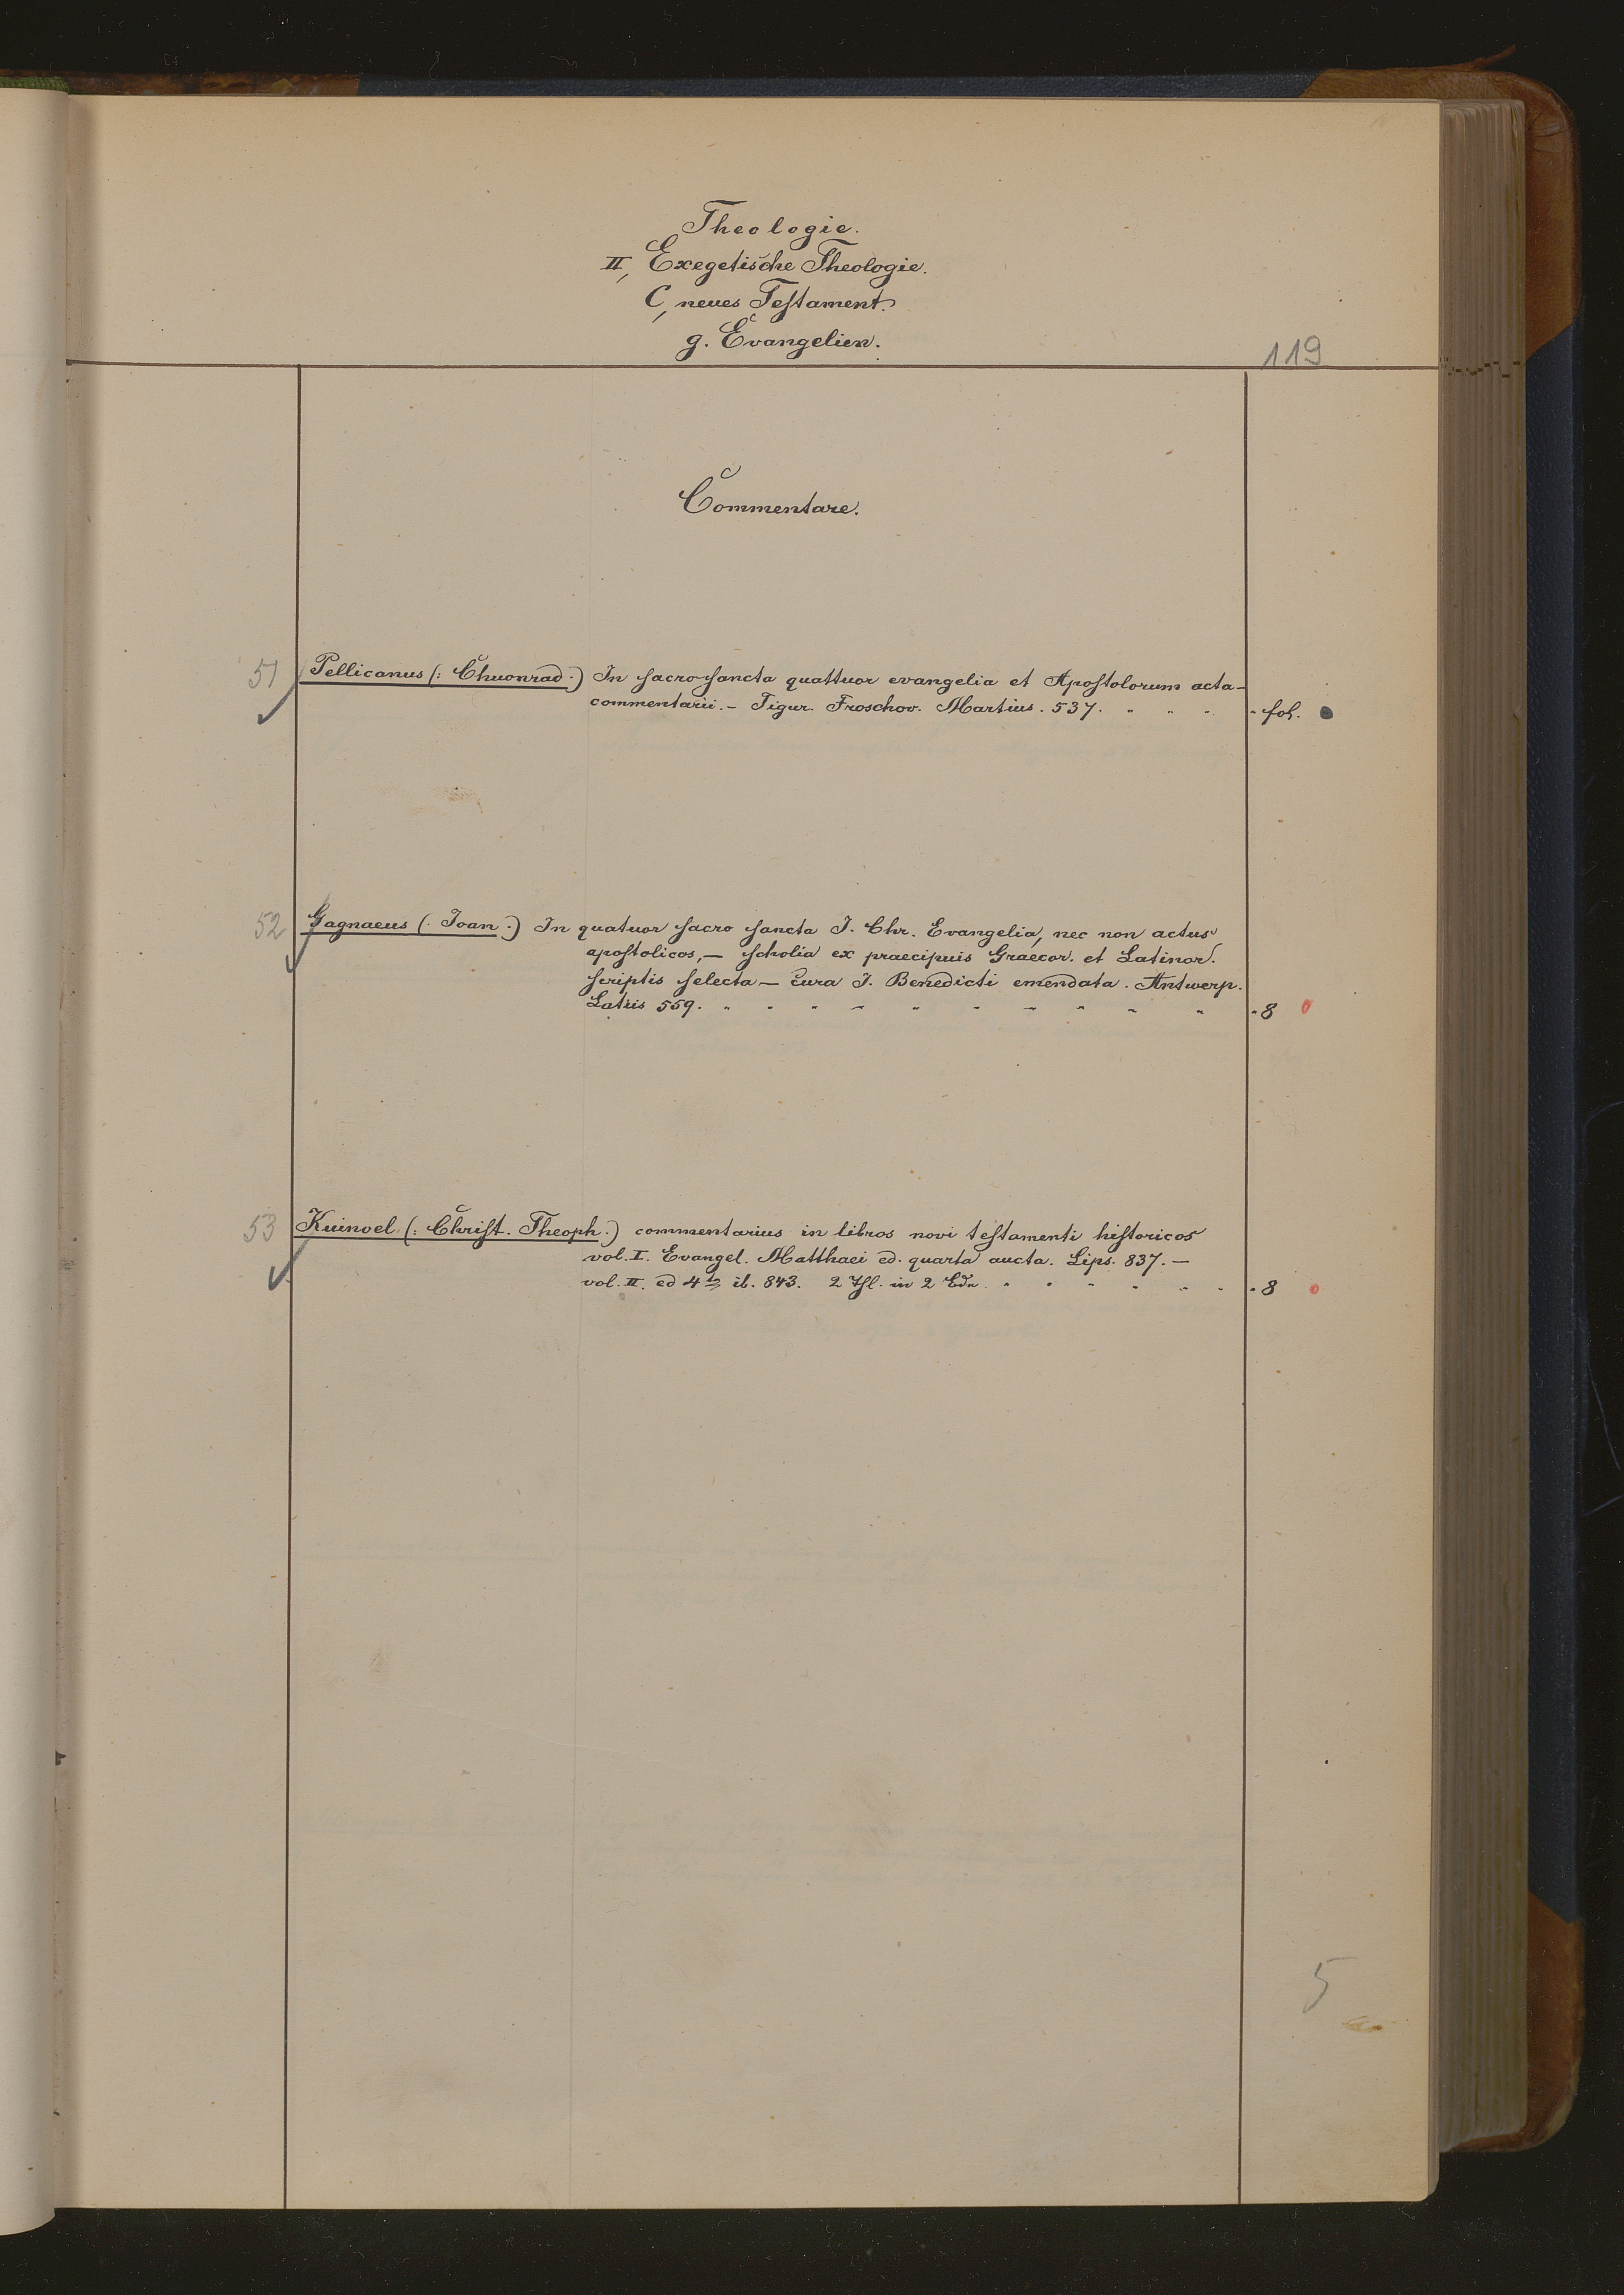 Theologie.
II, Exegetische Theologie.
C, neues Testament.
g. Evangelien.
119
Commentare.
51 Pellicanus (: Chuonrad :) In sacro sancta quattuor evangelia et Apostolorum acta –
commentarii. – Tigur. Froschov. Martius. 537. " " " " fol.
52 Gagnaeus (: Joan :) In quatuor sacro sancta J. Chr. Evangelia, nec non actus
apostolicos, – scholia ex praecipuis Graecor. et Latinor.
scriptis selecta – cura J. Benedicti emendata. Antwerp.
Latiis 559. " " " " " " " " " " " 8
53 Kuinoel (: Christ. Theoph :) commentarius in libros novi testamenti historicos
vol. I. Evangel. Matthaei ed. quarta aucta. Lips. 837. –
vol. II. ed 4ta ib. 843. 2 Thl. in 2 Bdn. " " " " " " " 8
5